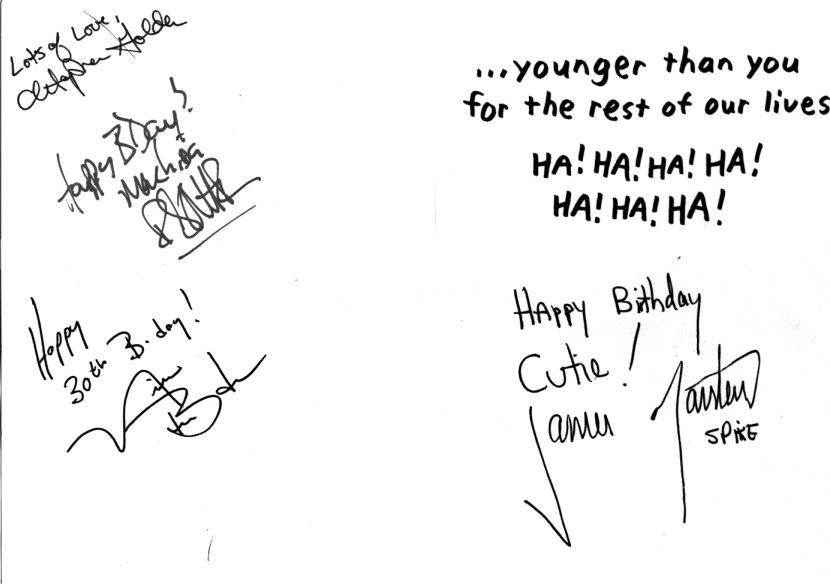 Lots of Love,
Christopher Golden
Happy B'Day!
Happy
30th B-day!
...younger than you
for the rest of our lives
HA! HA! HA! HA!
HA! HA! HA!
HAppy Birthday
Cutie!
James Marsters
SPIKE